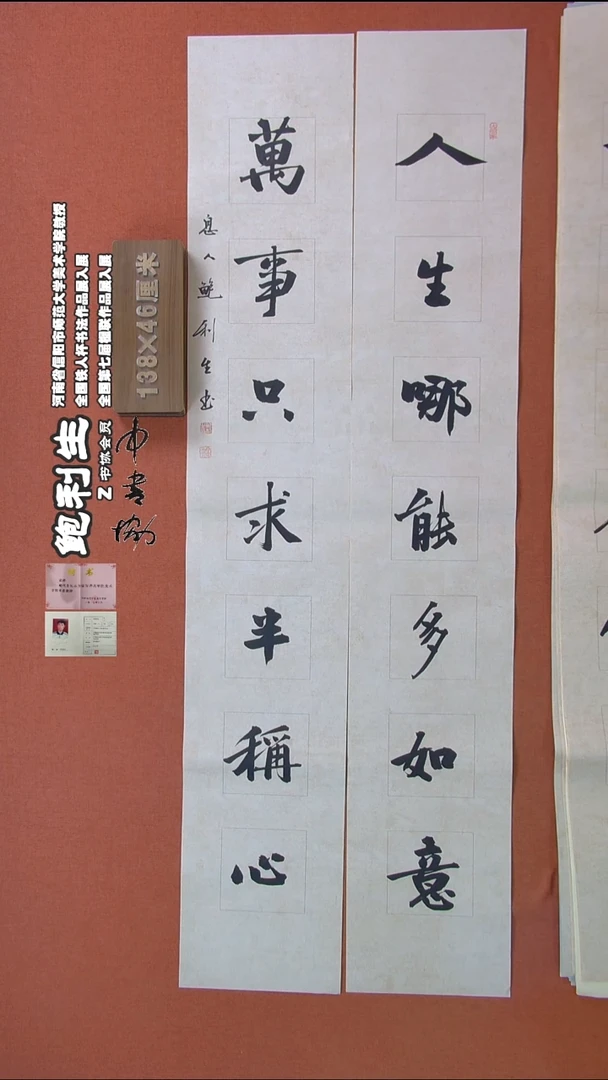 人生哪能多如意
萬事只求半稱心
息人鲍利生书
138×46厘米
河南省信阳市师范大学美术学院教授
全国铁人杯书法作品展入展
全国第七届楹联作品展入展
鲍利生
Z书协会员
中书协